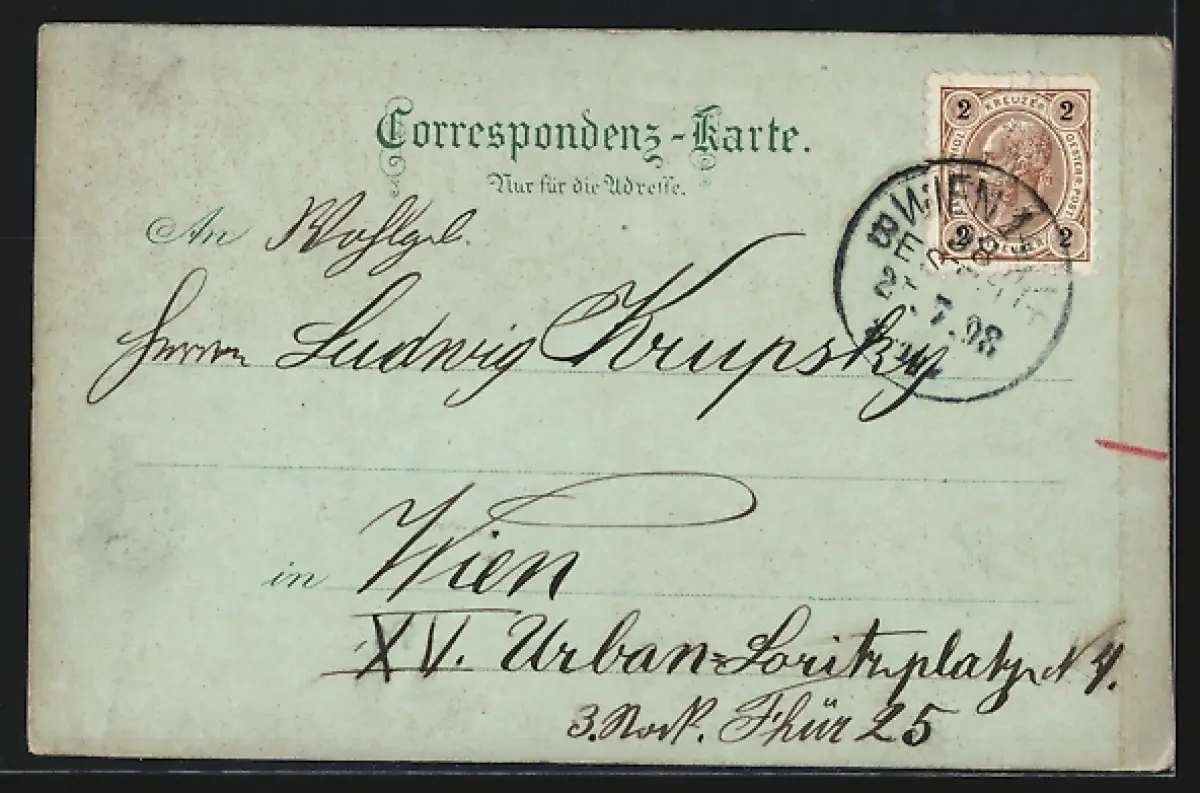 Correspondenz-Karte.
Nur für die Adresse.
2 KREUZER 2
2 2
WIEN 1
98
7.98
An Wohlgeb.
Herrn Ludwig Krupsky
in Wien
XV. Urban-Loritzplatz N 4.
3. Stock. Thür 25